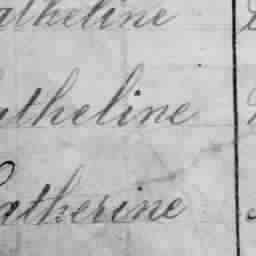 atheline
atheline
Catherine